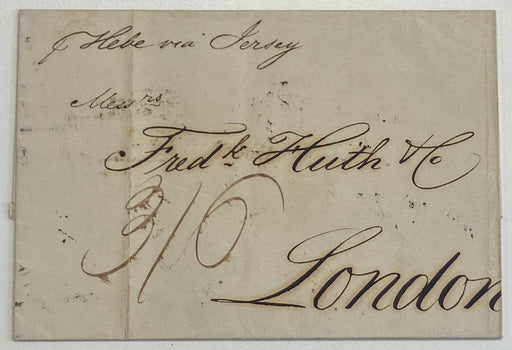 p Hebe via Jersey
Messrs
Fredk Huth & Co
3/6
London